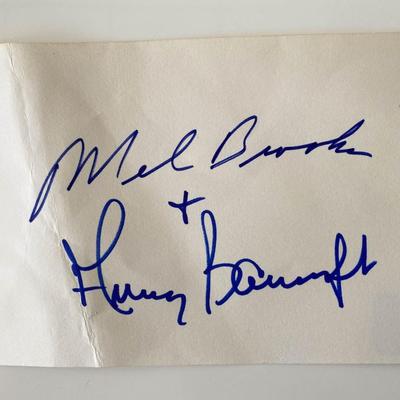 Mel Brooks
+
Anne Bancroft